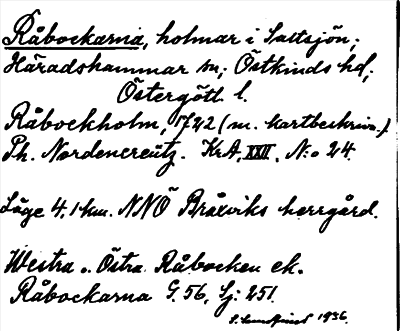 Råbockarna, holmar i Saltsjön;
Häradshammar sn; Östkinds hd;
Östergötl. l.
Råbockholm, 1742 (m. kartbeskrivn.)
Ph. Nordencreutz. KrA, XXII, N:o 24.
Läge 4.1 km. NNÖ Bråviks herrgård.
Westra o. Östra Råbocken ek.
Råbockarna G. 56, Sj: 251
1936.